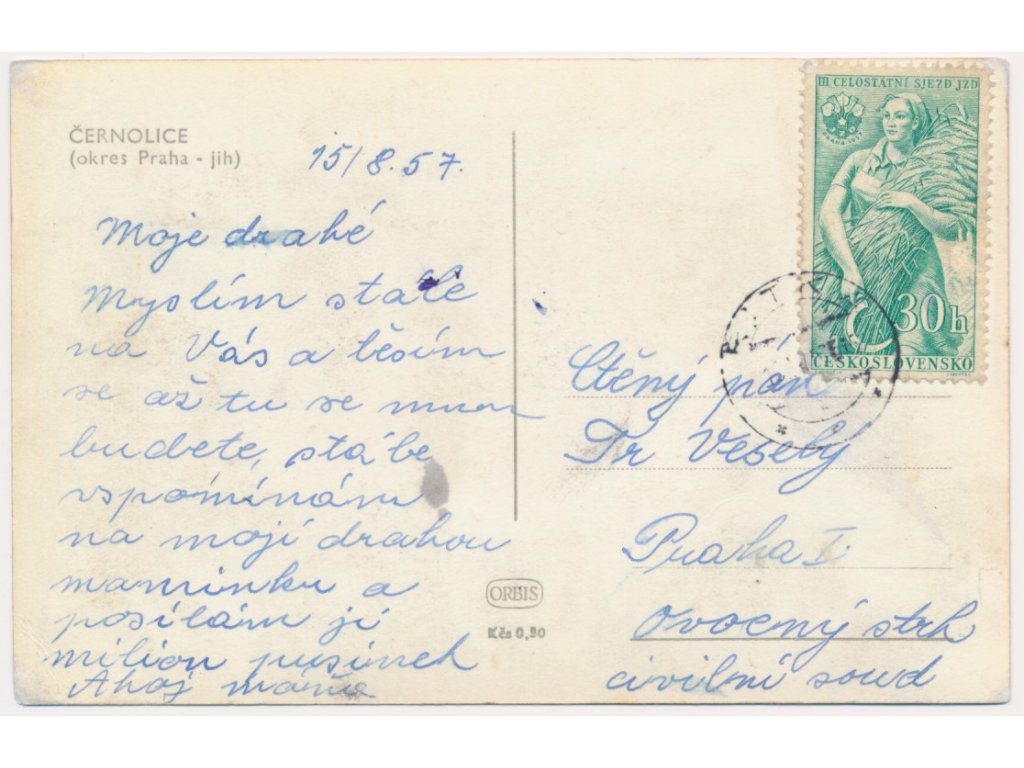 ČERNOLICE
(okres Praha - jih)
15/8.57.
Moje drahé
Myslím stále
na Vás a těším
se až tu se mnou
budete, stále
vspomínám
na moji drahou
maminku a
posílám jí
milion pusinek
Ahoj
ORBIS
Kčs 0,30
III CELOSTÁTNÍ SJEZD JZD
30h
ČESKOSLOVENSKO
Ctěný pán
Dr Veselý
Praha I.
Ovocný trh
civilní soud